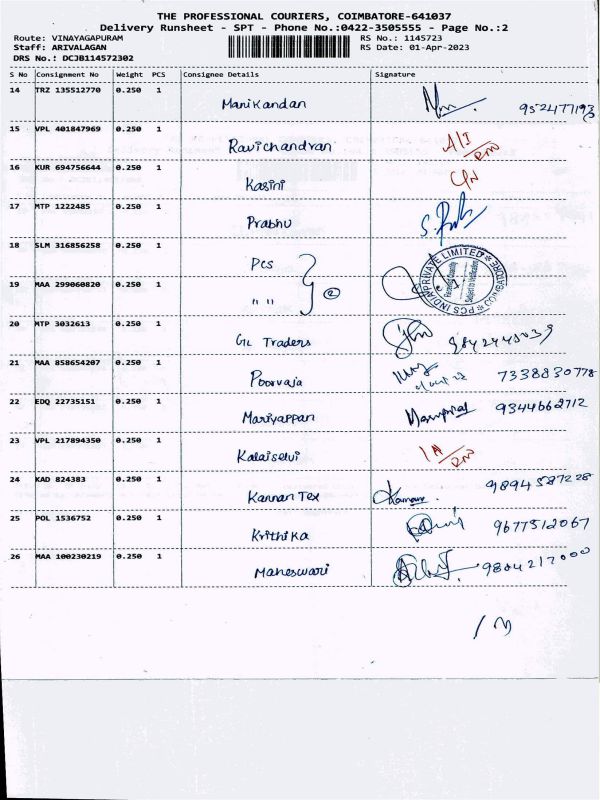 THE PROFESSIONAL COURIERS, COIMBATORE-641037
Delivery Runsheet - SPT - Phone No.:0422-3505555 - Page No.:2
Route: VINAYAGAPURAM RS No.: 1145723
Staff: ARIVALAGAN RS Date: 01-Apr-2023
DRS No.: DCJB114572302
S No Consignment No Weight PCS Consignee Details Signature
14 TRZ 135512770 0.250 1 Manikandan
15 VPL 401847969 0.250 1 Ravichandran
16 KUR 694756644 0.250 1 Kasini
17 MTP 1222485 0.250 1 Prabhu
18 SLM 316856258 0.250 1 Pcs
19 MAA 299060820 0.250 1 " " 2
PCS INDIA PRIVATE LIMITED COIMBATORE
20 MTP 3032613 0.250 1 GL Traders
21 MAA 858654207 0.250 1 Poorvaja 7338830778
22 EDQ 22735151 0.250 1 Mariyappan 9344662712
23 VPL 217894350 0.250 1 Kalaiselvi
24 KAD 824383 0.250 1 Kannan Tex 9894587228
25 POL 1536752 0.250 1 Krithika 9677512067
26 MAA 100230219 0.250 1 Maheswari 9804217000